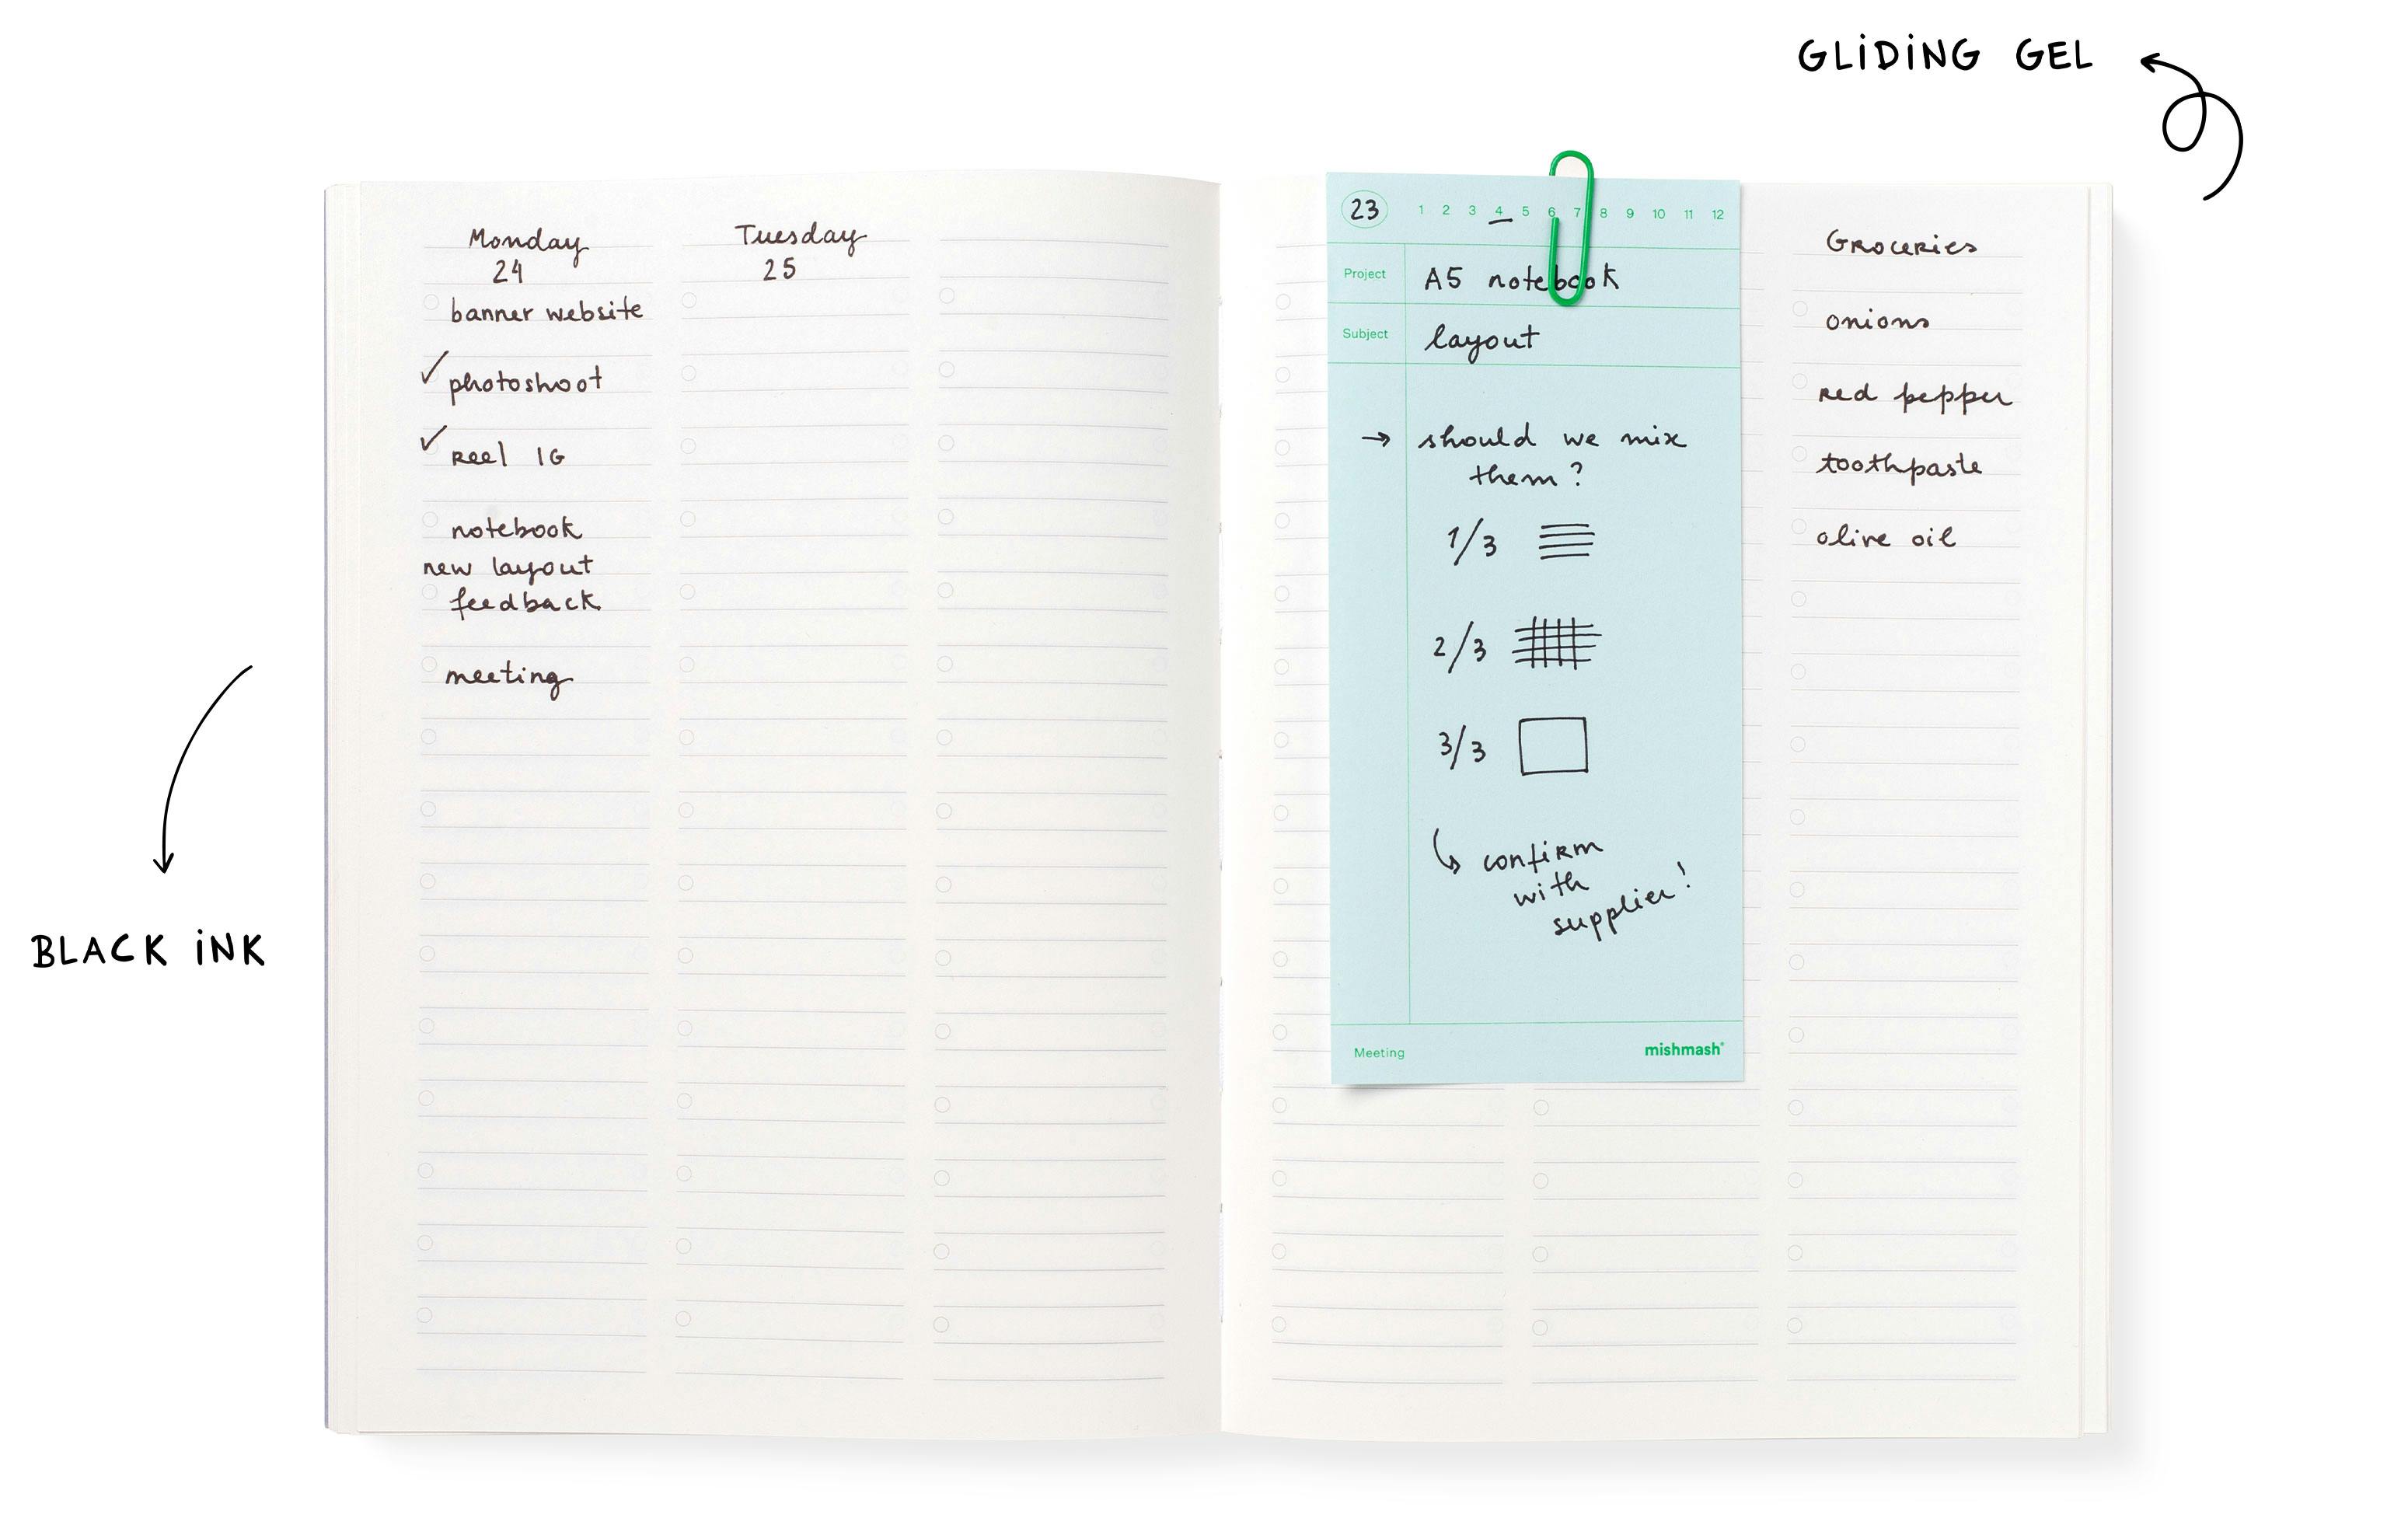 GLiDiNG GEL
Monday
24
banner website
photoshoot
Reel IG
notebook
new layout
feedback
meeting
Tuesday
25
23
1 2 3 4 5 6 7 8 9 10 11 12
Project
A5 notebook
Subject
layout
→ should we mix
them?
1/3
2/3
3/3
confirm
with
supplier!
Meeting
mishmash®
Groceries
onions
red pepper
toothpaste
olive oil
BLACK iNK